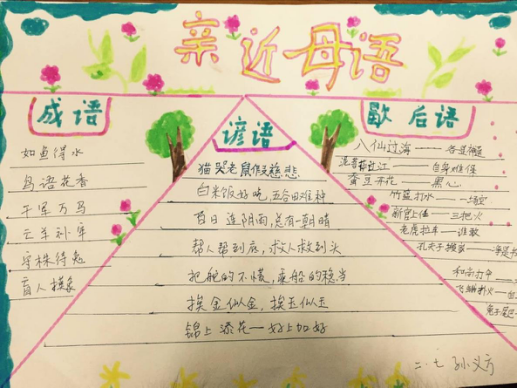 亲近母语
成语
如鱼得水
鸟语花香
千军万马
亡羊补牢
守株待兔
盲人摸象
谚语
猫哭老鼠假慈悲
白米饭好吃，五谷田难种
百日连阴雨，总有一朝晴
帮人帮到底，求人求到头
把舵的不慌，乘船的稳当
挨金似金，挨玉似玉
锦上添花——好上加好
歇后语
八仙过海——各显神通
泥菩萨过江——自身难保
蚕豆开花——黑心
竹篮打水——一场空
新官上任——三把火
老虎拉车——谁敢
孔夫子搬家——净是书
和尚打伞
飞蛾扑火
兔子尾巴
二.七 孙义方